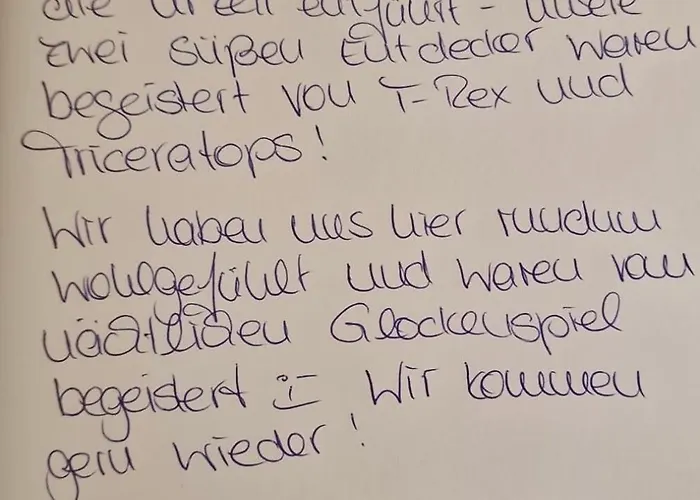 die Urzeit entführt - unsere
zwei süßen Entdecker waren
begeistert von T-Rex und
Triceratops!
Wir haben uns hier rundum
wohlgefühlt und waren vom
nächtlichen Glockenspiel
begeistert :-) Wir kommen
gern wieder!